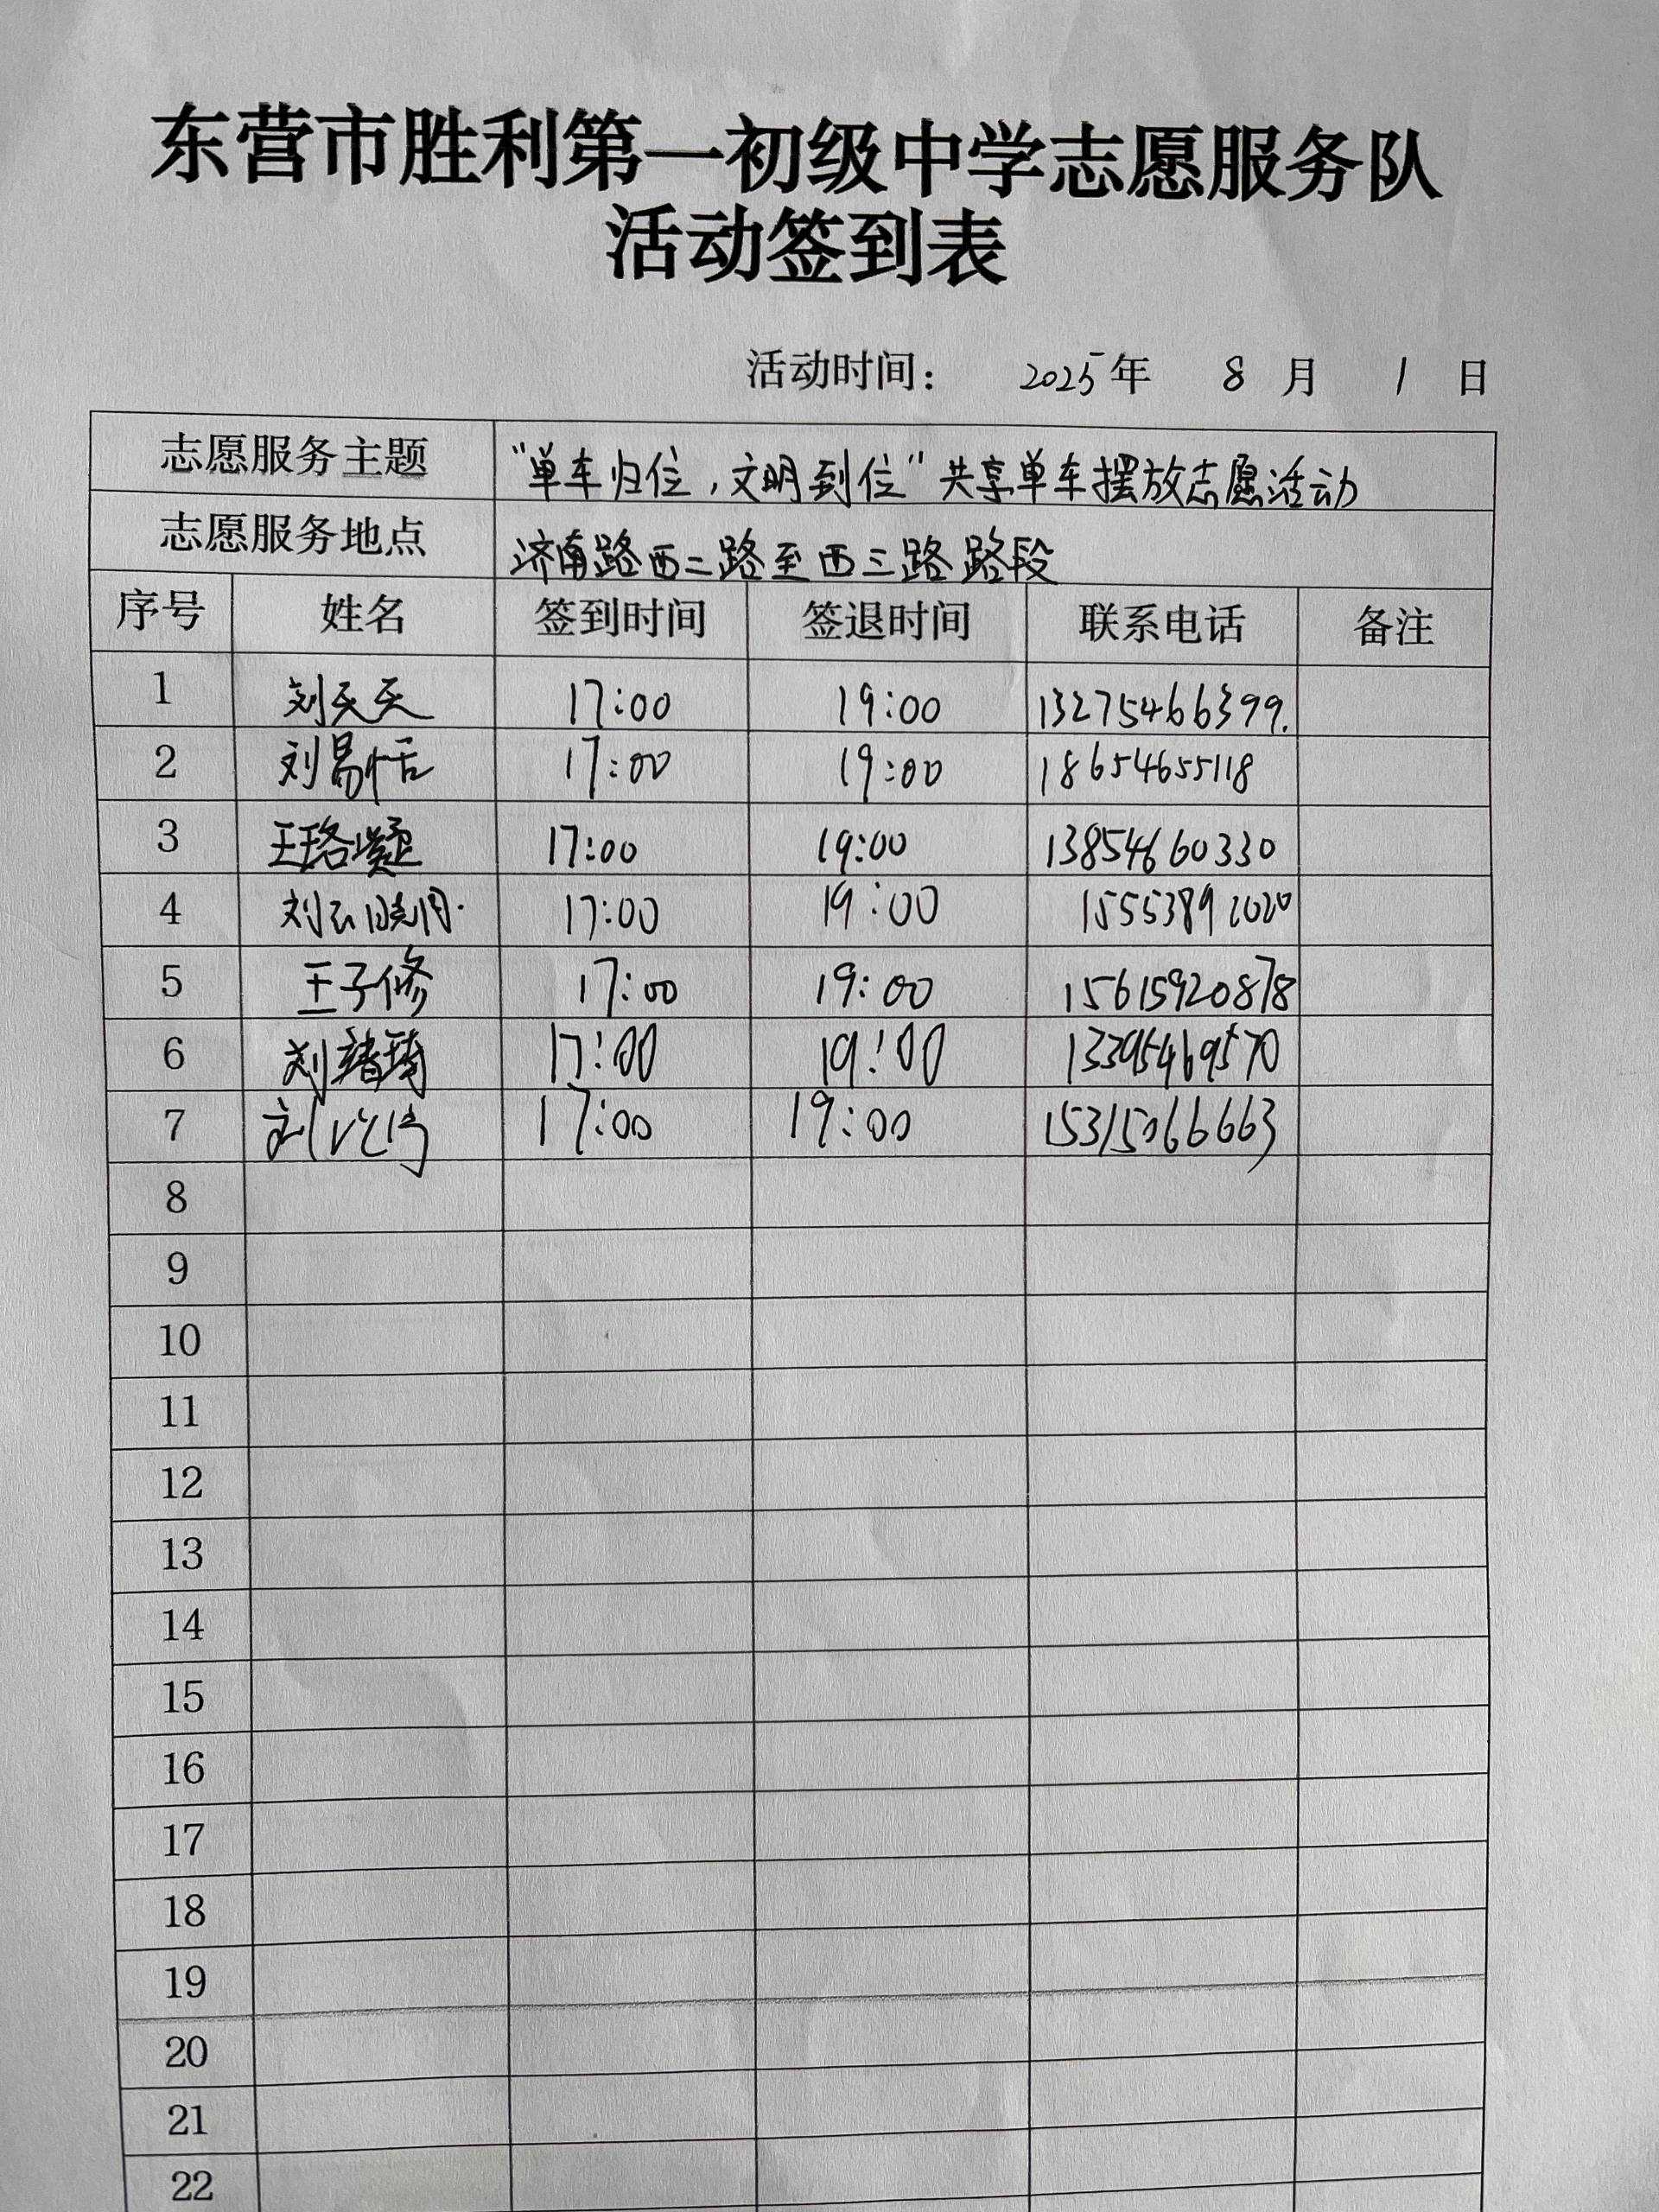 东营市胜利第一初级中学志愿服务队
活动签到表
活动时间： 2025年 8 月 1 日
志愿服务主题 “单车归位，文明到位”共享单车摆放志愿活动
志愿服务地点 济南路西二路至西三路路段
序号 姓名 签到时间 签退时间 联系电话 备注
1 刘天天 17:00 19:00 13275466399.
2 刘易恬 17:00 19:00 18654655118
3 王珞凝 17:00 19:00 13854660330
4 17:00 19:00 15553891020
5 王子修 17:00 19:00 15615920878
6 刘 17:00 19:00 13395469570
7 刘 17:00 19:00 15315066663
8
9
10
11
12
13
14
15
16
17
18
19
20
21
22